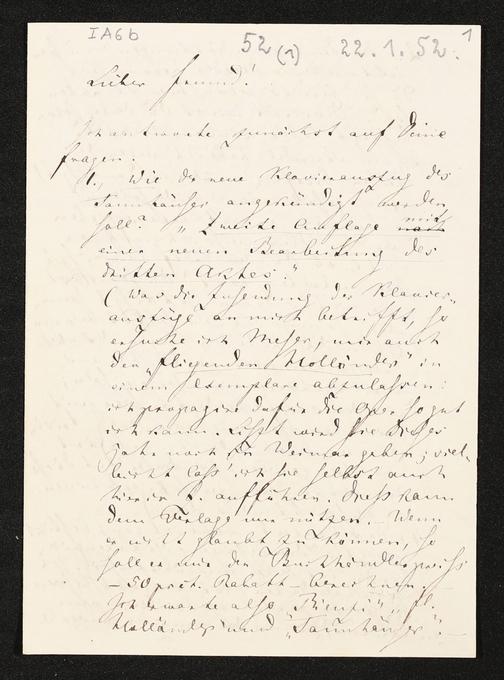 IA6b
52 (1) 22.1.52. 1
Lieber Freund!
Ich antworte zunächst auf Deine
Fragen.
1., Wie der neue Klavierauszug des
Tannhäuser angekündigt werden
soll? „Zweite Auflage mit
einer neuen Bearbeitung des
dritten Aktes."
(Was die Zusendung der Klavier-
auszüge an mich betrifft, so
ersuche ich Meser, mir auch
den „fliegenden Holländer" in
einem Exemplare abzulassen:
ich propagire dafür die Oper so gut
ich kann. Liszt wird sie dieses
Jahr noch in Weimar geben; viel-
leicht lass' ich sie selbst auch
hier in Z. aufführen. Diess kann
dem Verlage nur nützen. Wenn
er nicht glaubt zu können, so
soll er mir den Buchhändlerpreiss
– 50 proc. Rabatt – berechnen. –
Ich erwarte also „Rienzi", „fl.
Holländer" und „Tannhäuser". –